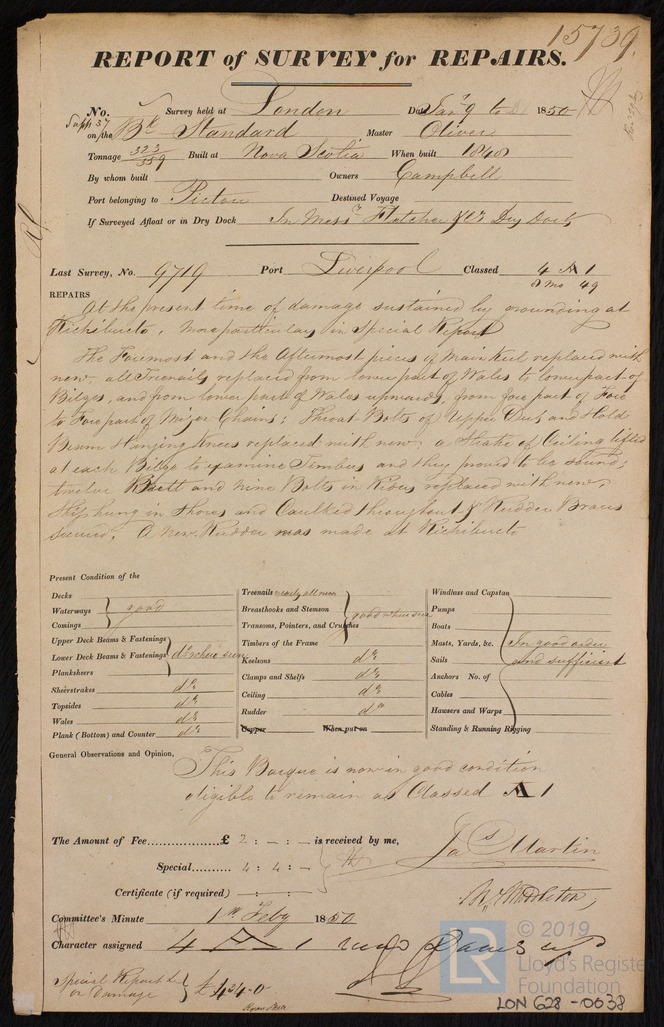 15739.
REPORT of SURVEY for REPAIRS.
No. Survey held at London Date Jany 9 to 1850
Supp 37
on the Bk Standard Master Oliver
Tonnage 323/359 Built at Nova Scotia When built 1848
By whom built Owners Campbell
Port belonging to Pictou Destined Voyage
If Surveyed Afloat or in Dry Dock In Messrs Fletcher & Co Dry Dock
Last Survey, No. 9719 Port Liverpool Classed 4 A 1
8 mo 49
REPAIRS
At the present time of damage sustained by grounding at
Richibucto, more particulars in Special Report
The Foremost and the Aftermost pieces of Main keel replaced with
new; all Treenails replaced from lower part of Wales to lower part of
Bilges, and from lower part of Wales upwards, from fore part of Fore
to Fore part of Mizen Chains; Throat Bolts of Upper Deck and Hold
Beam Hanging knees replaced with new; a Strake of Ceiling lifted
at each Bilge to examine Timbers and they proved to be sound;
twelve Butt and nine Bolts in Riders replaced with new;
Ship hung in Shores and Caulked throughout & Rudder Braces
secured. A New Rudder was made at Richibucto
Present Condition of the
Decks
Waterways good
Comings
Upper Deck Beams & Fastenings
Lower Deck Beams & Fastenings do where seen
Planksheers
Sheerstrakes do
Topsides do
Wales do
Plank (Bottom) and Counter do
Treenails nearly all new
Breasthooks and Stemson good where seen
Transoms, Pointers, and Crutches
Timbers of the Frame
Keelsons do
Clamps and Shelfs do
Ceiling do
Rudder do
Copper When put on
Windlass and Capstan
Pumps
Boats
Masts, Yards, &c. In good order
Sails and sufficient
Anchors No. of
Cables
Hawsers and Warps
Standing & Running Rigging
General Observations and Opinion,
This Barque is now in good condition
eligible to remain as Classed A 1
The Amount of Fee £ 2 : - : - is received by me,
Special 4 : 4 : - Jas Martin
Certificate (if required) - : - : -
Wm Middleton
Committee's Minute 1st Feby 1850
Character assigned 4 A 1
Special Report &
on Damage £4 4-0
© 2019
LR
Lloyd's Register
Foundation
LON 628-0038